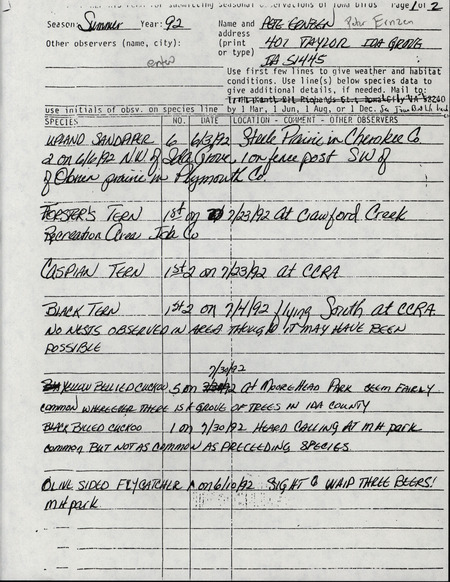 Use this form for submitting seasonal observations of Iowa birds Page 1 of 2
Season: Summer Year: 92 Name and PETE ERNZEN Peter Ernzen
address
Other observers (name, city): (print 401 TAYLOR IDA GROVE
or type) IA 51445
Use first few lines to give weather and habitat
conditions. Use line(s) below species data to
give additional details, if needed. Mail to:
use initials of obsv. on species line by 1 Mar, 1 Jun, 1 Aug, or 1 Dec.
SPECIES NO. DATE LOCATION - COMMENT - OTHER OBSERVERS
UPLAND SANDPIPER 6 6/3/92 Steele Prairie in Cherokee Co.
2 on 6/6/92 NW of Ida Grove, 1 on fence post SW of
O'Brien prairie in Plymouth Co.
FORSTER'S TERN 1st on 7/23/92 at Crawford Creek
Recreation Area Ida Co
CASPIAN TERN 1st 2 on 7/23/92 at CCRA
BLACK TERN 1st 2 on 7/4/92 flying South at CCRA
NO NESTS OBSERVED IN AREA THOUGH IT MAY HAVE BEEN
POSSIBLE
7/30/92
YELLOW BELLIED CUCKOO 5 on at MOOREHEAD PARK SEEM FAIRLY
common WHEREEVER THERE IS A GROVE OF TREES IN IDA COUNTY
BLACK BILLED CUCKOO 1 on 7/30/92 HEARD CALLING AT MH park
common BUT NOT AS COMMON AS PRECEEDING SPECIES.
OLIVE SIDED FLYCATCHER 1 on 6/10/92 SIGHT & WHIP THREE BEERS!
MH park.